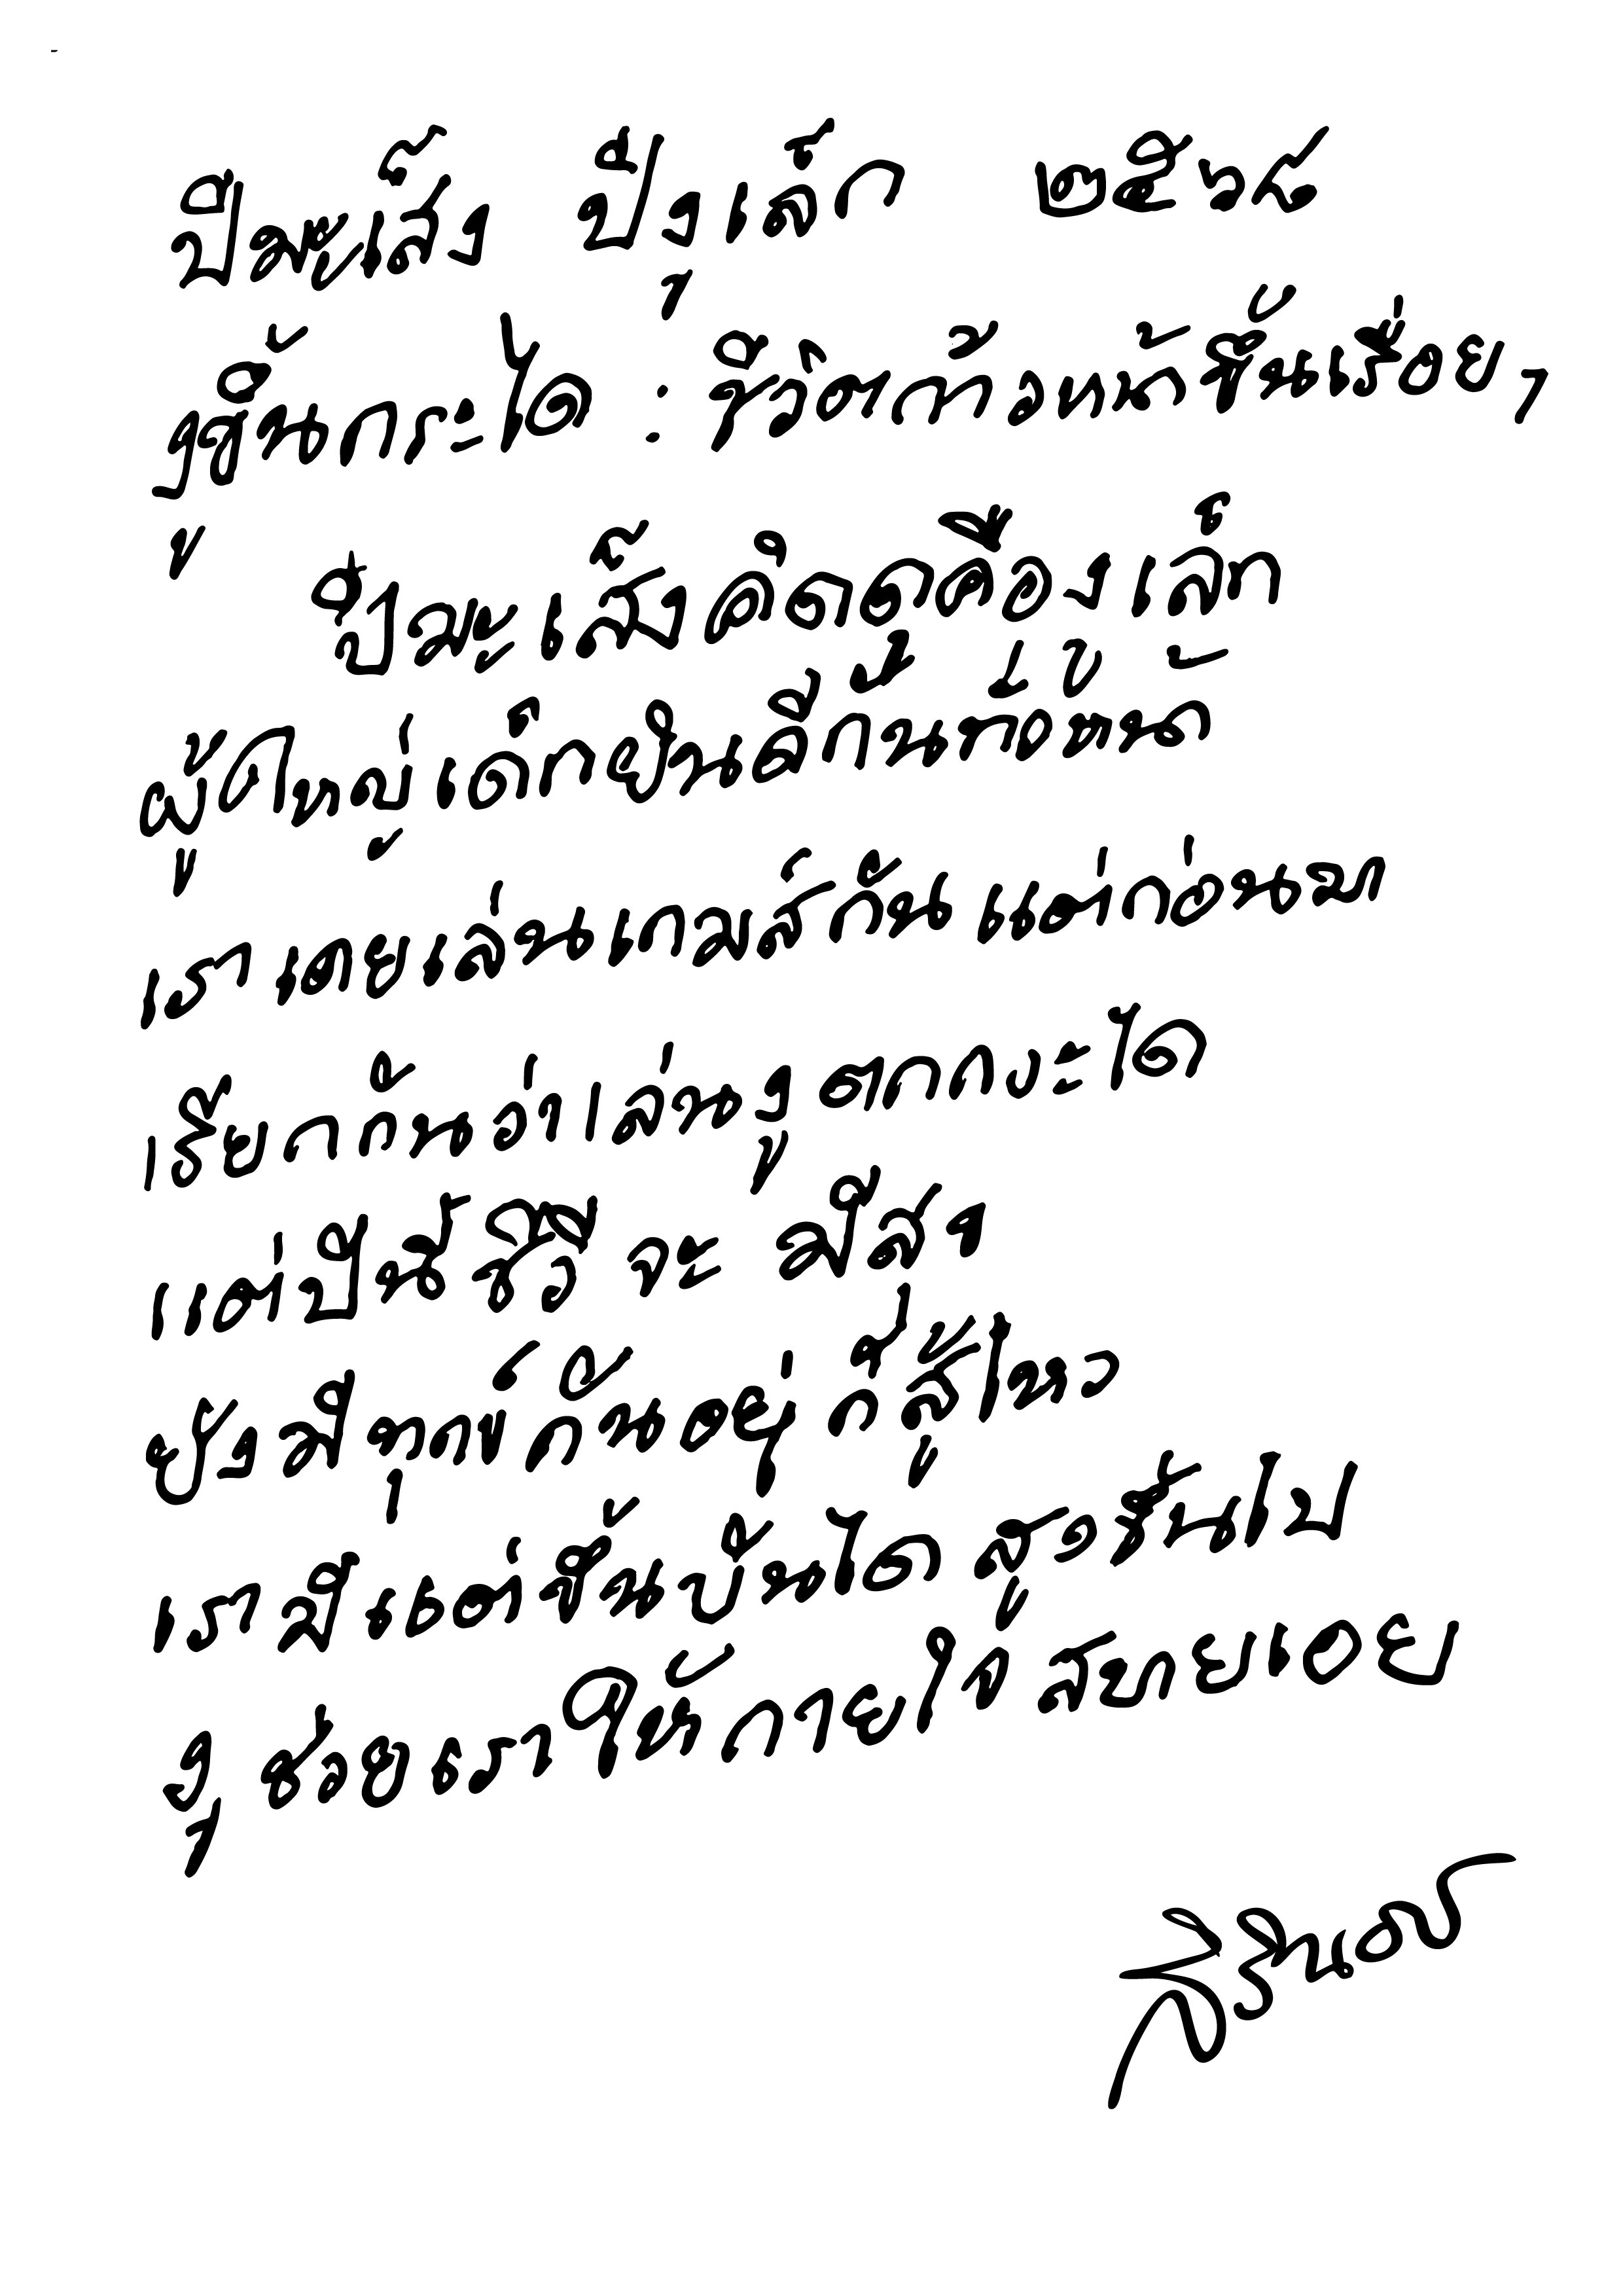 ปีมะเส็ง ปีงูเล็ก ๒๕๖๘
งูขึ้นกระได : ชีวิตก้าวหน้าขึ้นเรื่อย ๆ
ปีมะเส็งคิดถึงเรื่องเล็ก
ผู้ใหญ่เด็กปีนลึกหนาบาง
เราเคยเล่นเกมส์กันแต่ก่อนมา
เรียกกันว่าเล่นงูตกกระได
แต่ปีนี้ชีวีจะมีสุข
ยังมีทุกข์กันอยู่ก็สู้ไหว
เรามีแต่ขึ้นบันไดสูงขึ้นไป
งูช่วยเราให้กายใจสบายเอย
สิรินธร